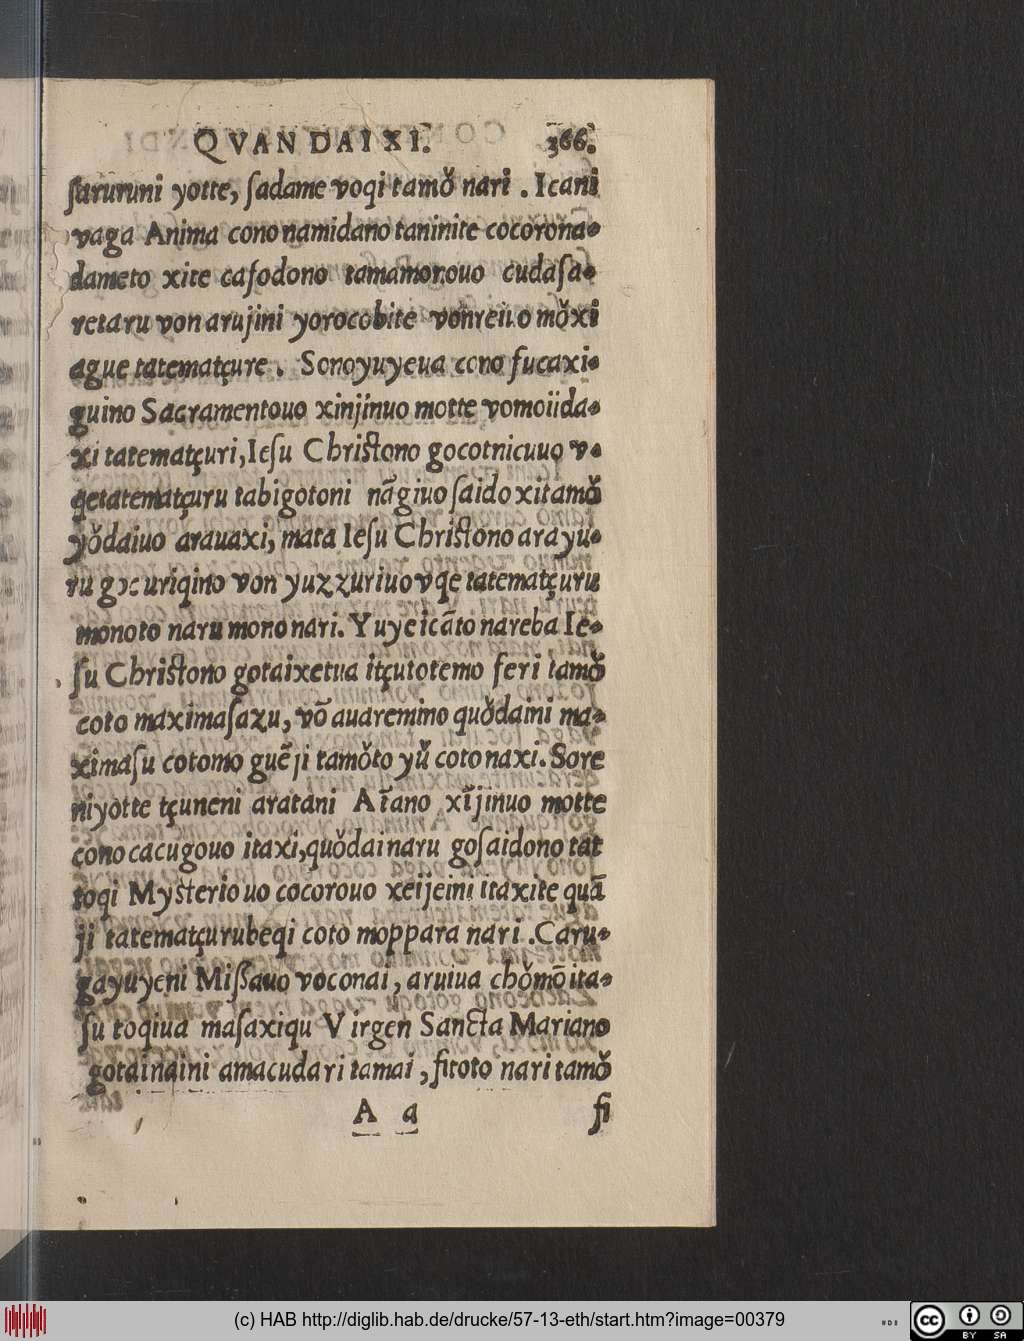 QVAN DAI XI. 366.
ſaruruni yotte, ſadame voqi tamǒ nari . Icani
vaga Anima cono namidano taninite cocorona-
dameto xite cafodono tamamonouo cudaſa-
retaru von arujini yorocobite vonreiuo mǒxi
ague tatematçure . Sonoyuyeua cono fucaxi-
guino Sacramentouo xinjinuo motte vomoiida-
xi tatematçuri, Ieſu Chriſtono gocotnicuuo v-
qetatematçuru tabigotoni nãgiuo ſaido xitamǒ
yǒdaiuo arauaxi, mata Ieſu Chriſtono arayu-
ru gocuriqino von yuzzuriuo vqe tatematçuru
monoto naru mono nari. Yuye icãto nareba Ie-
ſu Chriſtono gotaixetua itçutotemo feri tamǒ
coto maximaſazu, võ auaremino quǒdaini ma-
ximaſu cotomo guẽji tamǒto yǔ coto naxi. Sore
niyotte tçuneni aratani Aĩano xĩjinuo motte
cono cacugouo itaxi, quǒdai naru goſaidono tat
toqi Myſteriouo cocorouo xeijeini itaxite quã
ji tatematçurubeqi coto moppara nari . Caru-
gayuyeni Miſſauo voconai, aruiua chǒmõ ita-
ſu toqiua maſaxiqu Virgen Sancta Mariano
gotainaini amacudari tamai, fitoto nari tamǒ
A a fi
(c) HAB http://diglib.hab.de/drucke/57-13-eth/start.htm?image=00379
cc BY SA